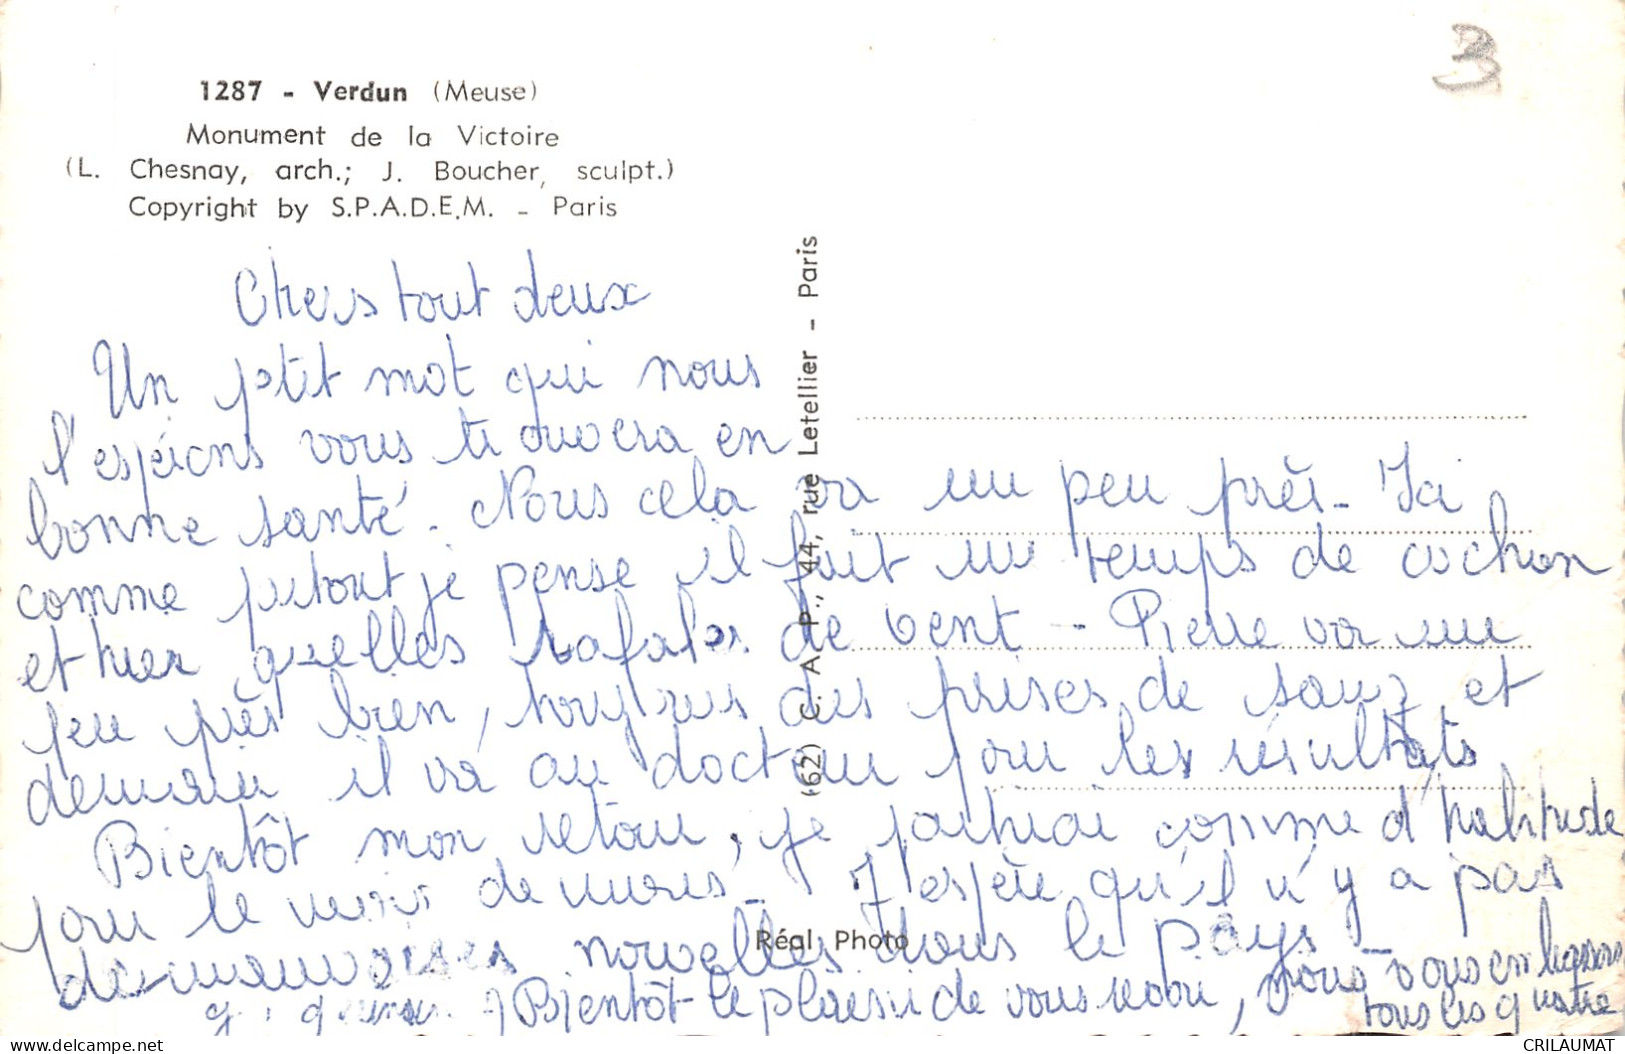 3
1287 - Verdun (Meuse)
Monument de la Victoire
(L. Chesnay, arch.; J. Boucher, sculpt.)
Copyright by S.P.A.D.E.M. - Paris
(62) C. A. P., 44, rue Letellier - Paris
Chers tout deux
Un ptit mot qui nous
l'espérons vous trouvera en
bonne santé. Nous cela va un peu près - Ici
comme partout je pense il fait un temps de cochon
et hier quelles rafales de vent - Pierre va un
peu près bien, toujours des prises de sang et
demain il va au docteur pour les résultats
Bientôt mon retour, je partirai comme d'habitude
pour le mois de mars - J'espère qu'il n'y a pas
de mauvaises nouvelles dans le pays -
Réal Photo
Bientôt le plaisir de vous revoir, nous vous embrassons
tous les quatre
CRILAUMAT
www.delcampe.net